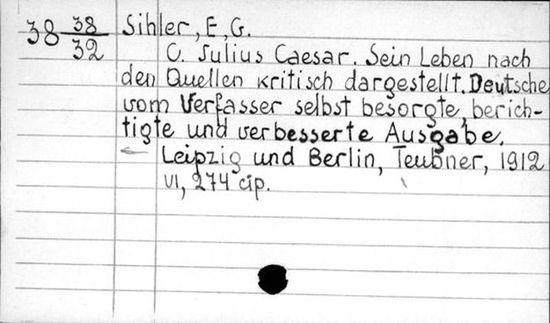 38 38/32 Sihler, E, G.
C. Julius Caesar. Sein Leben nach
den Quellen kritisch dargestellt. Deutsche
vom Verfasser selbst besorgte, berich-
tigte und verbesserte Ausgabe.
Leipzig und Berlin, Teubner, 1912
VI, 274 cip.